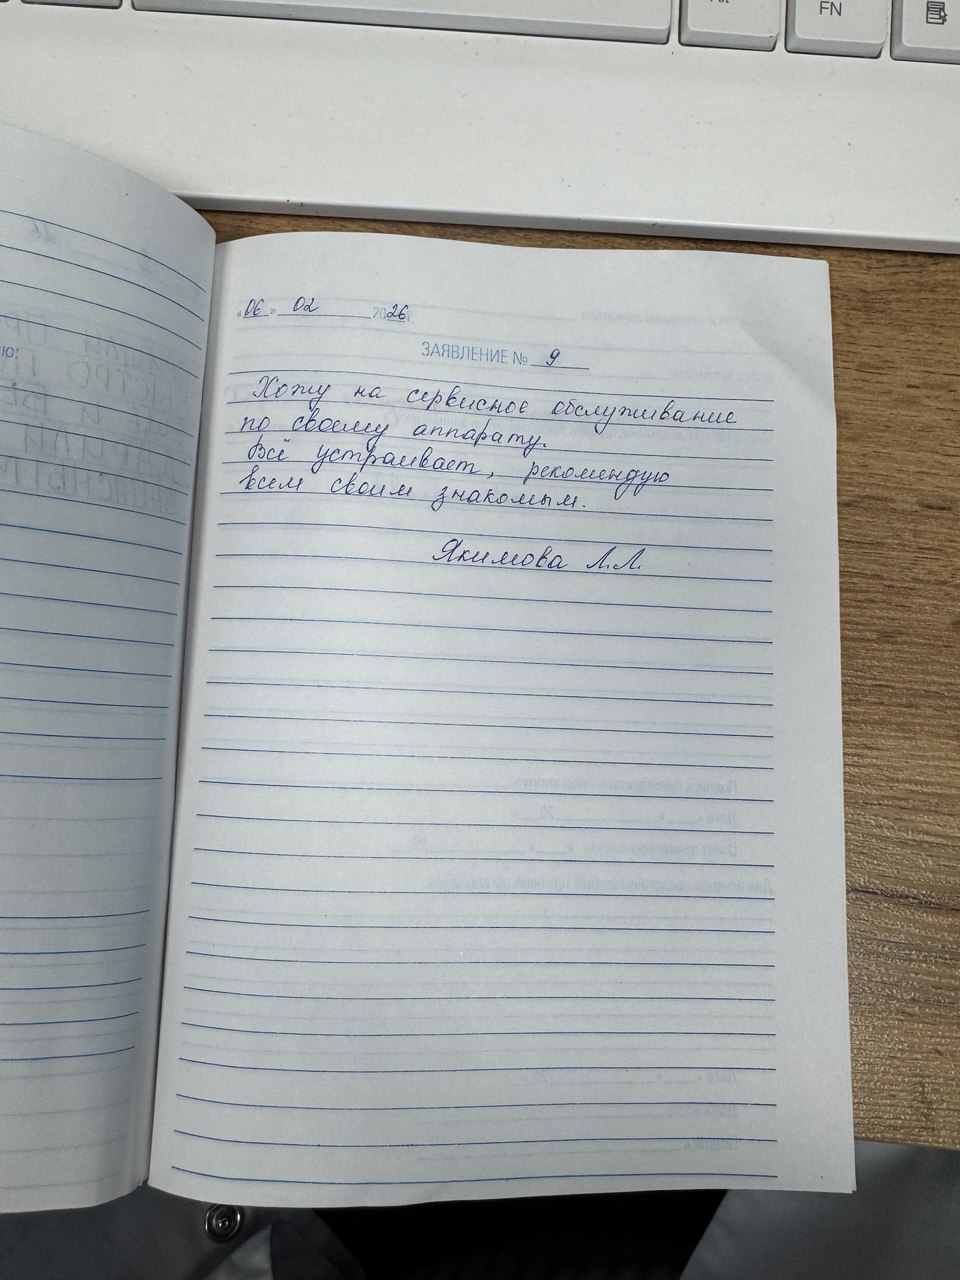 FN
«06» 02 2026г
ЗАЯВЛЕНИЕ № 9
Хожу на сервисное обслуживание
по своему аппарату.
Всё устраивает, рекомендую
всем своим знакомым.
Якимова Л.Л.